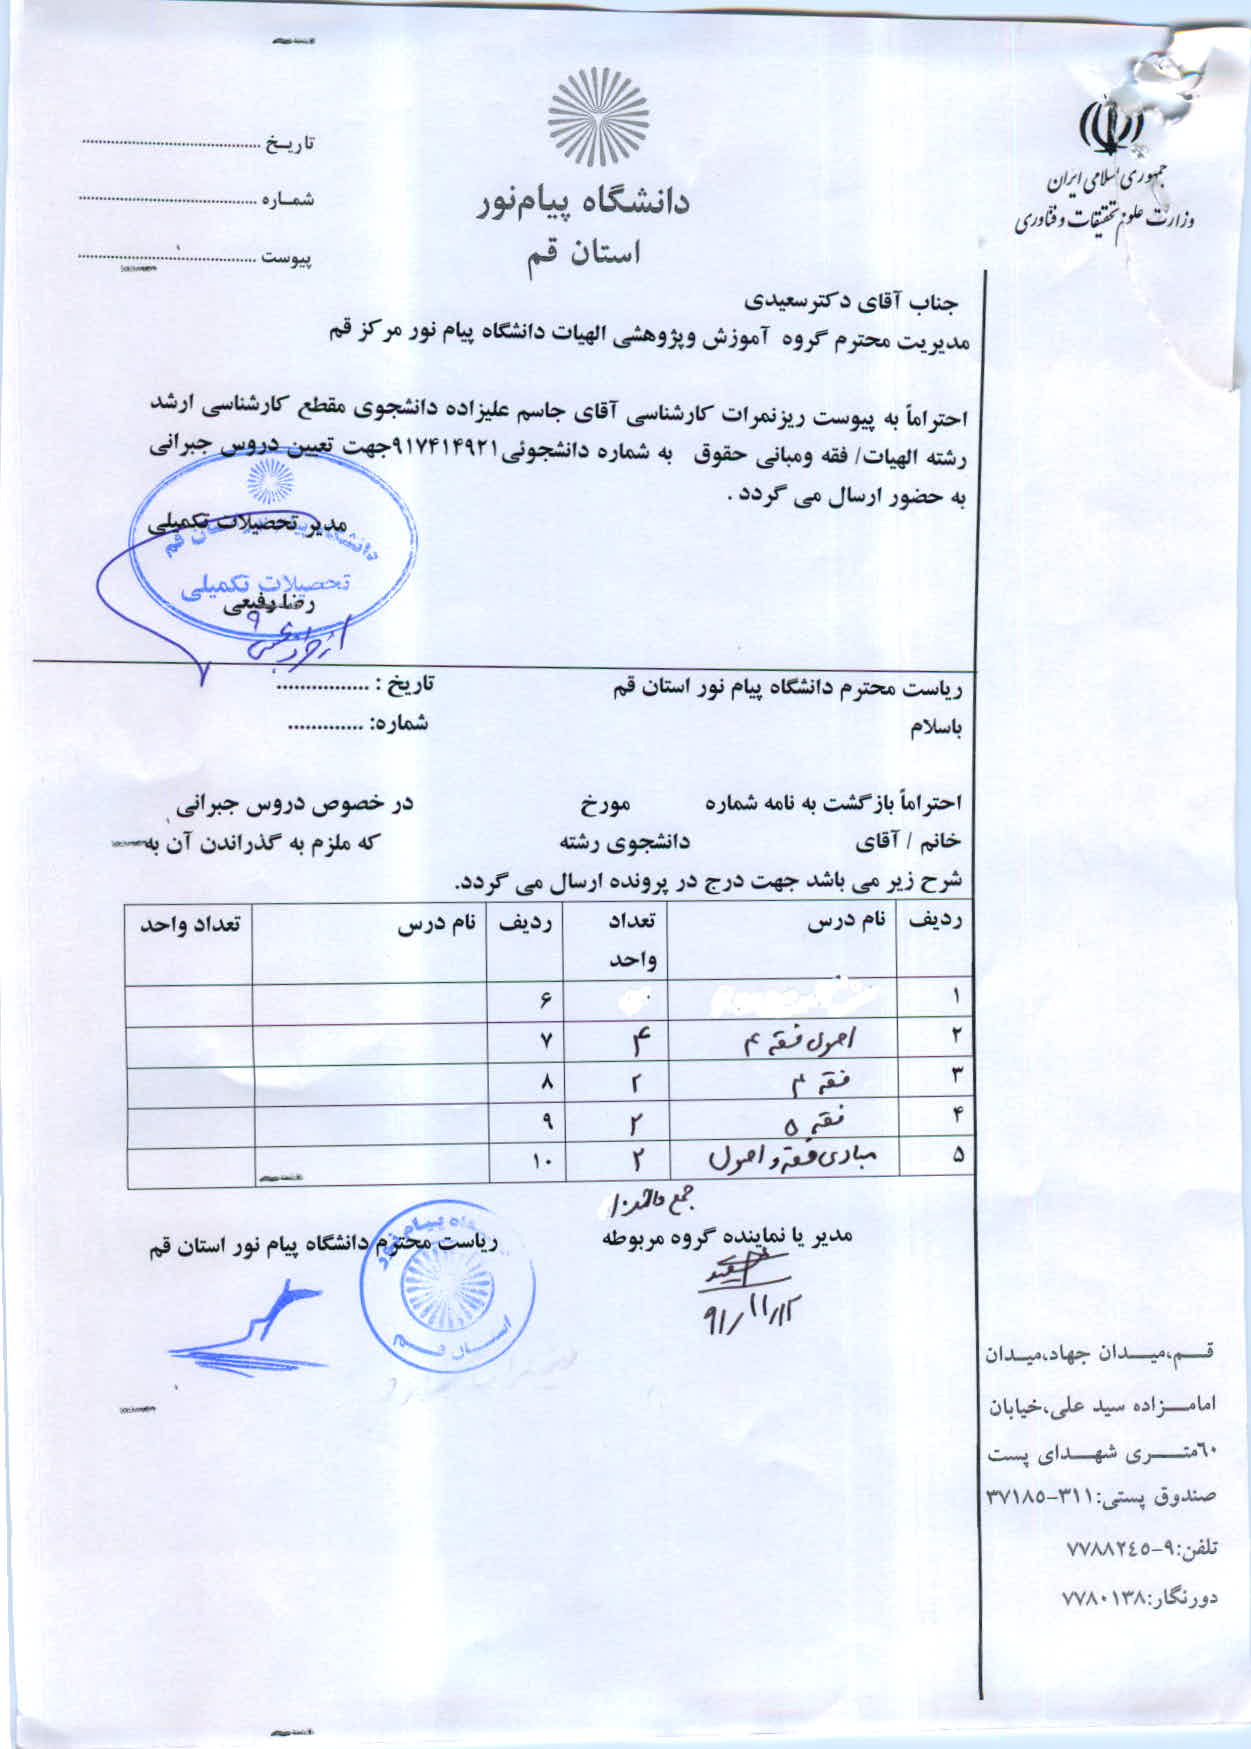 جمهوری اسلامی ایران
وزارت علوم تحقیقات و فناوری
دانشگاه پیام‌نور
استان قم
تاریخ ........................................
شماره ........................................
پیوست ........................................
جناب آقای دکترسعیدی
مدیریت محترم گروه آموزش وپژوهشی الهیات دانشگاه پیام نور مرکز قم
احتراماً به پیوست ریزنمرات کارشناسی آقای جاسم علیزاده دانشجوی مقطع کارشناسی ارشد
رشته الهیات/ فقه ومبانی حقوق به شماره دانشجوئی۹۱۷۴۱۴۹۲۱جهت تعیین دروس جبرانی
به حضور ارسال می گردد .
مدیر تحصیلات تکمیلی
دانشگاه پیام نور استان قم
تحصیلات تکمیلی
رضا رفیعی
ریاست محترم دانشگاه پیام نور استان قم تاریخ : ................
باسلام شماره: .............
احتراماً بازگشت به نامه شماره مورخ در خصوص دروس جبرانی
خانم / آقای دانشجوی رشته که ملزم به گذراندن آن به
شرح زیر می باشد جهت درج در پرونده ارسال می گردد.
ردیف نام درس تعداد واحد ردیف نام درس تعداد واحد
۱ ۶
۲ اصول فقه ۴ ۴ ۷
۳ فقه ۴ ۲ ۸
۴ فقه ۵ ۲ ۹
۵ مبادی فقه و اصول ۲ ۱۰
جمع واحد ۱۰
مدیر یا نماینده گروه مربوطه ریاست محترم دانشگاه پیام نور استان قم
دانشگاه پیام نور
استان قم
۹۱/۱۱/۱۲
قم،میدان جهاد،میدان
امامزاده سید علی،خیابان
٦٠متری شهدای پست
صندوق پستی:۳۱۱-۳۷۱۸٥
تلفن:۹-۷۷۸۸۲٤٥
دورنگار:۷۷۸۰۱۳۸